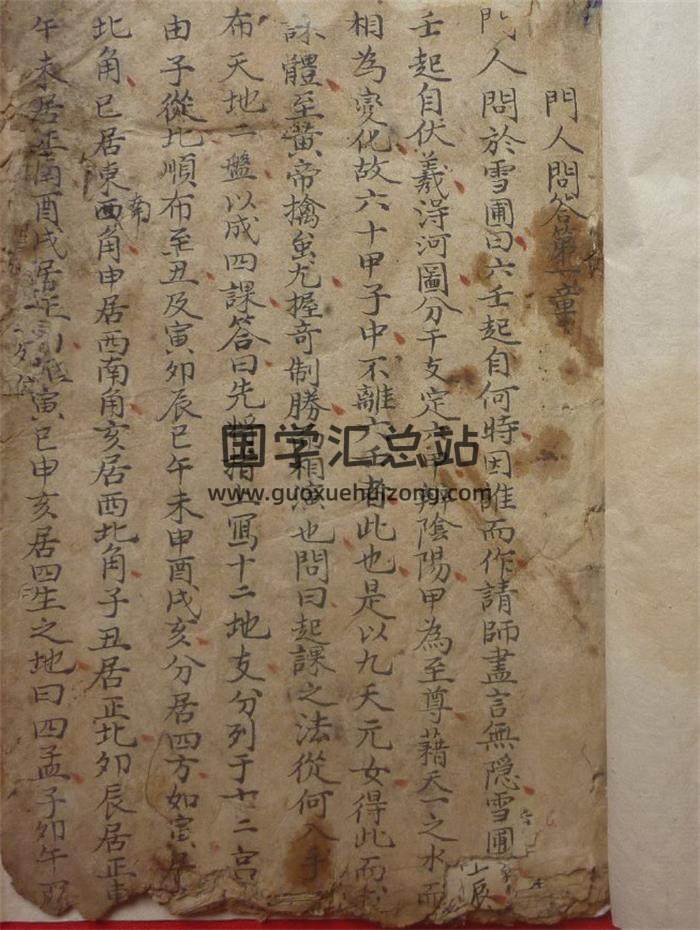 門人問答第一章
門人問於雪圃曰六壬起自何時因誰而作請師盡言無隱雪圃
壬起自伏羲淂河圖分干支定六甲辨陰陽甲為至尊藉天一之水而
相為變化故六十甲子中不離六壬者此也是以九天元女得此而
課體至黄帝擒蚩尤握奇制勝相演也問曰起課之法從何入手
布天地二盤以成四課答曰先將指上寫十二地支分列于十二宫
由子從北順布至丑及寅卯辰巳午未申酉戌亥分居四方如寅居
北角巳居東西角申居西南角亥居西北角子丑居正北卯辰居正東
南
午未居正南酉戌居正寅巳申亥居四生之地曰四孟子卯午
国学汇总站
www.guoxuehuizong.com